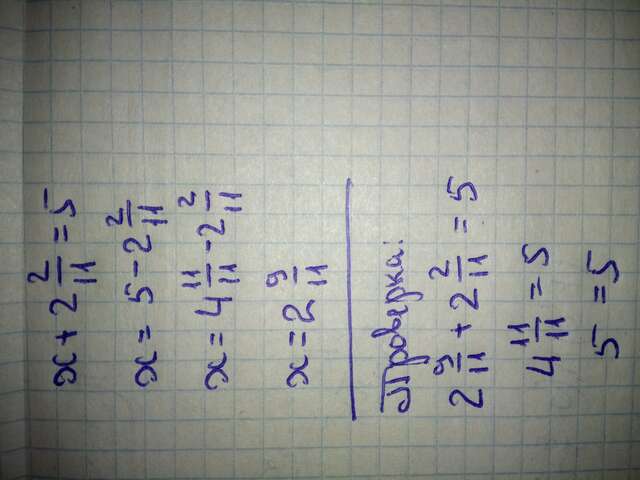 x + 2 2/11 = 5
x = 5 - 2 2/11
x = 4 11/11 - 2 2/11
x = 2 9/11
Проверка:
2 9/11 + 2 2/11 = 5
4 11/11 = 5
5 = 5